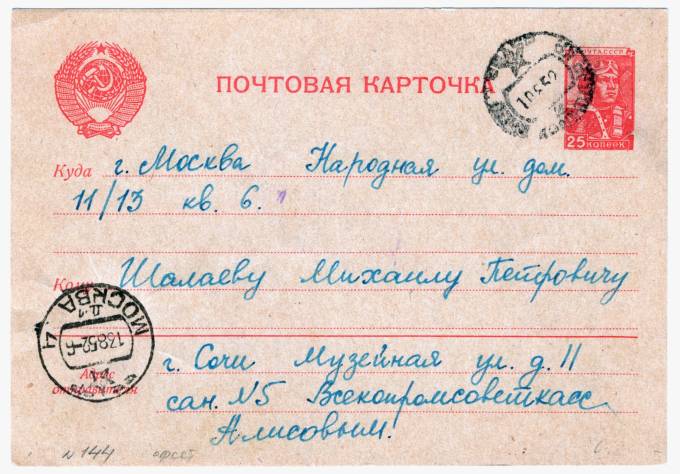 ПОЧТОВАЯ КАРТОЧКА
ПОЧТА СССР
25 КОПЕЕК
Куда г. Москва Народная ул. дом.
11/13 кв. 6.
Кому Шалаеву Михаилу Петровичу
МОСКВА 4
13852-6
Адрес отправителя г. Сочи Музейная ул. д. 11
сан. N5 Всекопромсоветкасс
Алисовым.
N 144 офсет